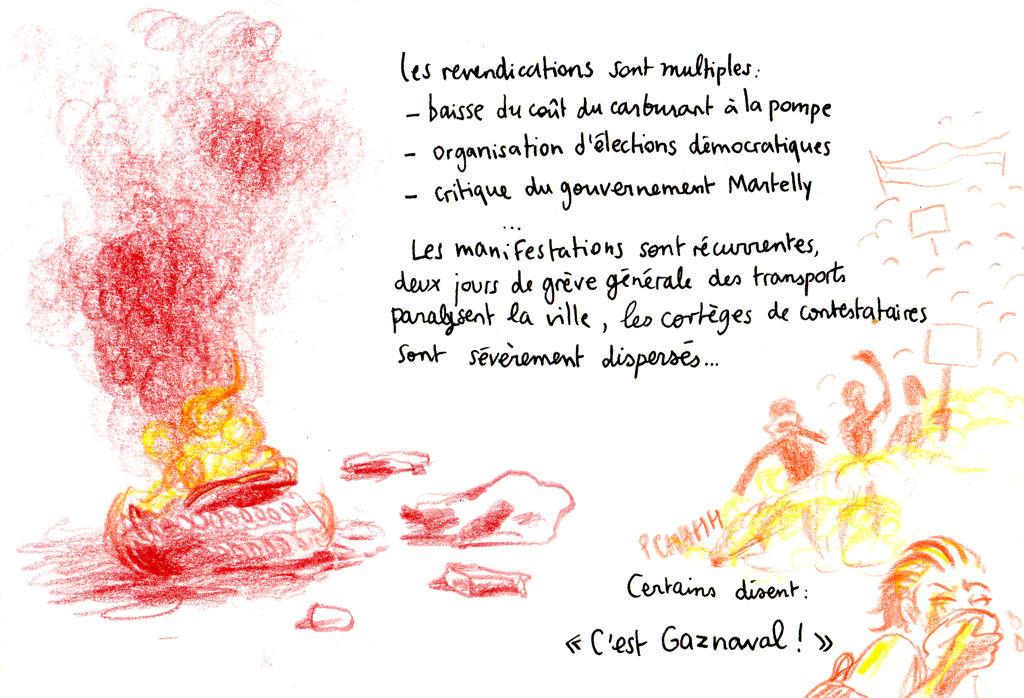 les revendications sont multiples:
- baisse du coût du carburant à la pompe
- organisation d'élections démocratiques
- critique du gouvernement Martelly
...
Les manifestations sont récurrentes,
deux jours de grève générale des transports
paralysent la ville, les cortèges de contestataires
sont sévèrement dispersés...
PCHHHH
Certains disent:
« C'est Gaznaval ! »